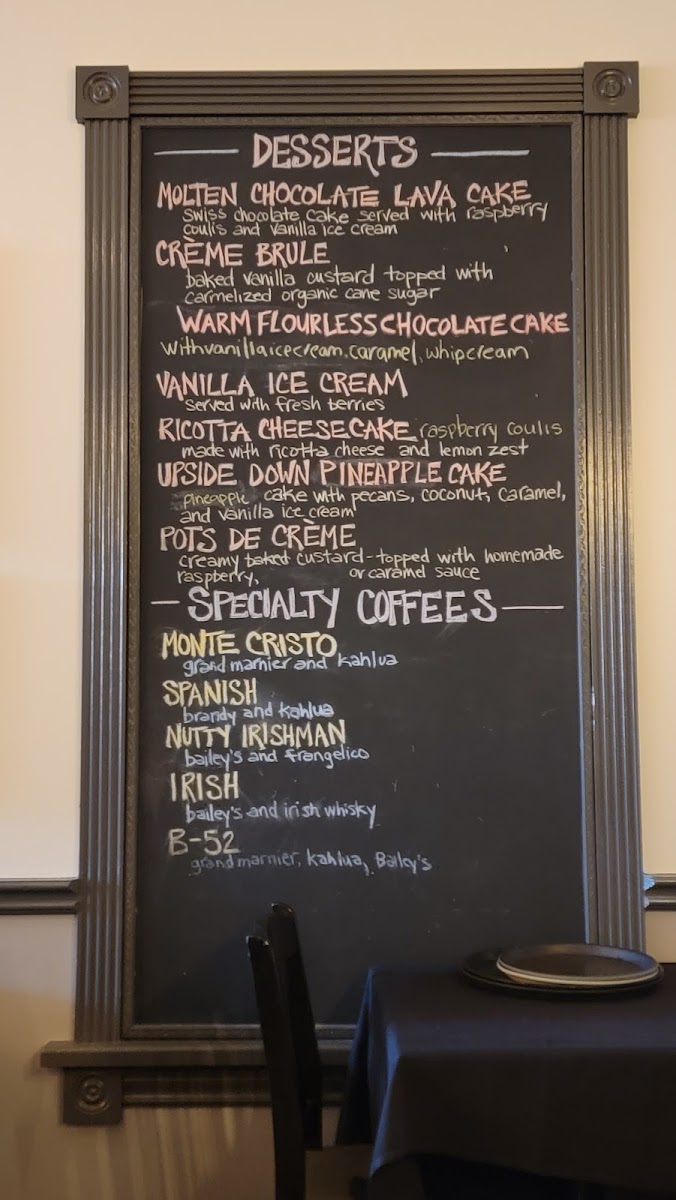 DESSERTS
MOLTEN CHOCOLATE LAVA CAKE
swiss chocolate cake served with raspberry
coulis and vanilla ice cream
CRÈME BRULE
baked vanilla custard topped with
carmelized organic cane sugar
WARM FLOURLESS CHOCOLATE CAKE
with vanilla ice cream, caramel, whip cream
VANILLA ICE CREAM
served with fresh berries
RICOTTA CHEESECAKE raspberry coulis
made with ricotta cheese and lemon zest
UPSIDE DOWN PINEAPPLE CAKE
pineapple cake with pecans, coconut, caramel,
and vanilla ice cream
POTS DE CRÈME
creamy baked custard-topped with homemade
raspberry, or caramel sauce
SPECIALTY COFFEES
MONTE CRISTO
grand marnier and kahlua
SPANISH
brandy and kahlua
NUTTY IRISHMAN
bailey's and frangelico
IRISH
bailey's and irish whisky
B-52
grand marnier, kahlua, Bailey's